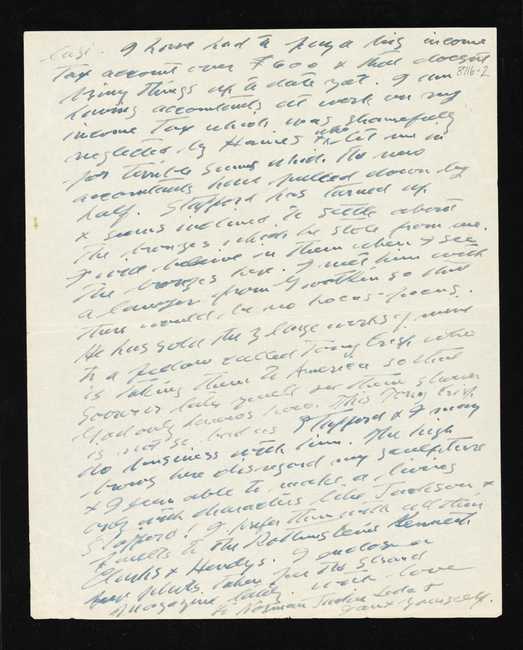 I have had to pay a big income
Tax account over £600 & that doesn't
8716-2
bring things up to date yet. I am
having accountants at work on my
income tax which was shamefully
neglected by Haines who let me in
for terrible sums which the new
accountants have pulled down by
half. Stafford has turned up
& seems inclined to settle about
the bronzes which he stole from me.
I will believe in them when I see
the bronzes here. I met him with
a lawyer from so that
there would be no hocus-pocus.
He has sold the 3 large works of mine
to a fellow called Tony Crisp who
is taking them to America so that
sooner or later you'll see them shown
God only knows how. This Tony Crisp
is not so bad as Stafford & I may
do business with him. The high
brows here disregard my sculpture
& I am able to make a living
only with characters like Jackson &
Stafford! I prefer them with all their
faults to the Kenneth
Clarks & Hendys. I enclose a
few photos taken for the Strand
Magazine lately. with love
to Norman Jackie Leda &
yourself.